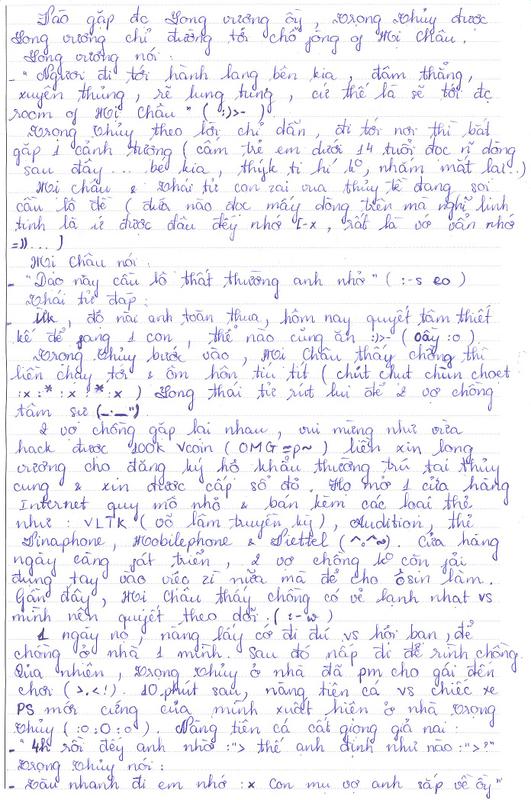 Sao gặp đc Long vương ồy, Trọng Thủy được
Long vương chỉ đường tới chỗ jống of Mỵ Châu.
Long vương nói:
- "Ngươi đi tới hành lang bên kia, đâm thẳng,
xuyên thủng, rẽ lung tung, cứ thế là sẽ tới đc
room of Mỵ Châu" ( ;)>- )
Trọng Thủy theo lời chỉ dẫn, đi tới nơi thì bắt
gặp 1 cảnh tượng ( cấm trẻ em dưới 14 tuổi đọc n~ dòng
sau đây... bé kia, thýk ti hí k°, nhắm mắt lại..)
Mị Châu & thái tử con zai vua thủy tề đang soi
cầu lô đề ( đứa nào đọc mấy dòng trên mà nghĩ linh
tinh là ứ được đâu đấy nhớ [-x, rất là vớ vẩn nhớ
=))... )
Mị Châu nói:
- "Dạo này cầu lô thất thường anh nhở" ( :-s eo )
Thái tử đáp:
- Ukk, độ nài anh toàn thua, hôm nay quyết tâm thiết
kế để jang 1 con, thể nào cũng ăn :)>- ( Oầy :o )
Trọng Thủy bước vào, Mị Châu thấy chồng thì
liền chạy tới & ôm hôn túi tít ( chút chụt chùn choẹt
:x :* :x :* :x ) Long thái tử rút lui để 2 vợ chồng
tâm sự (_._")
2 vợ chồng gặp lại nhau, vui mừng như vừa
hack được 100k Vcoin ( OMG =p~ ) liền xin long
vương cho đăng ký hộ khẩu thường trú tại thủy
cung & xin được cấp sổ đỏ. Họ mở 1 cửa hàng
Internet quy mô nhỏ & bán kèm các loại thẻ
như: VLTK ( võ lâm truyền kỳ ), Audition, thẻ
Vinaphone, Mobilephone & Viettel (^.^=). Cửa hàng
ngày càng fát triển, 2 vợ chồng k° còn fải
dùng tay vào việc zì nữa mà để cho ôsin làm.
Gần đây, Mị Châu thấy chồng có vẻ lạnh nhạt vs
mình nên quyết theo dõi. ( :-w )
1 ngày nọ, nàng lấy cớ đi dú vs hội bạn, để
chồng ở nhà 1 mình. Sau đó nấp đi để rình chồng.
Quả nhiên, Trọng Thủy ở nhà đã pm cho gái đến
chơi ( >.<! ). 10 phút sau, nàng tiên cá vs chiếc xe
PS mới cứng của mình xuất hiện ở nhà Trọng
Thủy ( :o :O :o ). Nàng tiên cá cất giọng giả nai:
- "4h rồi đấy anh nhở :"> thế anh định như nào :">?"
Trọng Thủy nói:
- Vào nhanh đi em nhớ :x Con mụ vợ anh sắp về ồy"